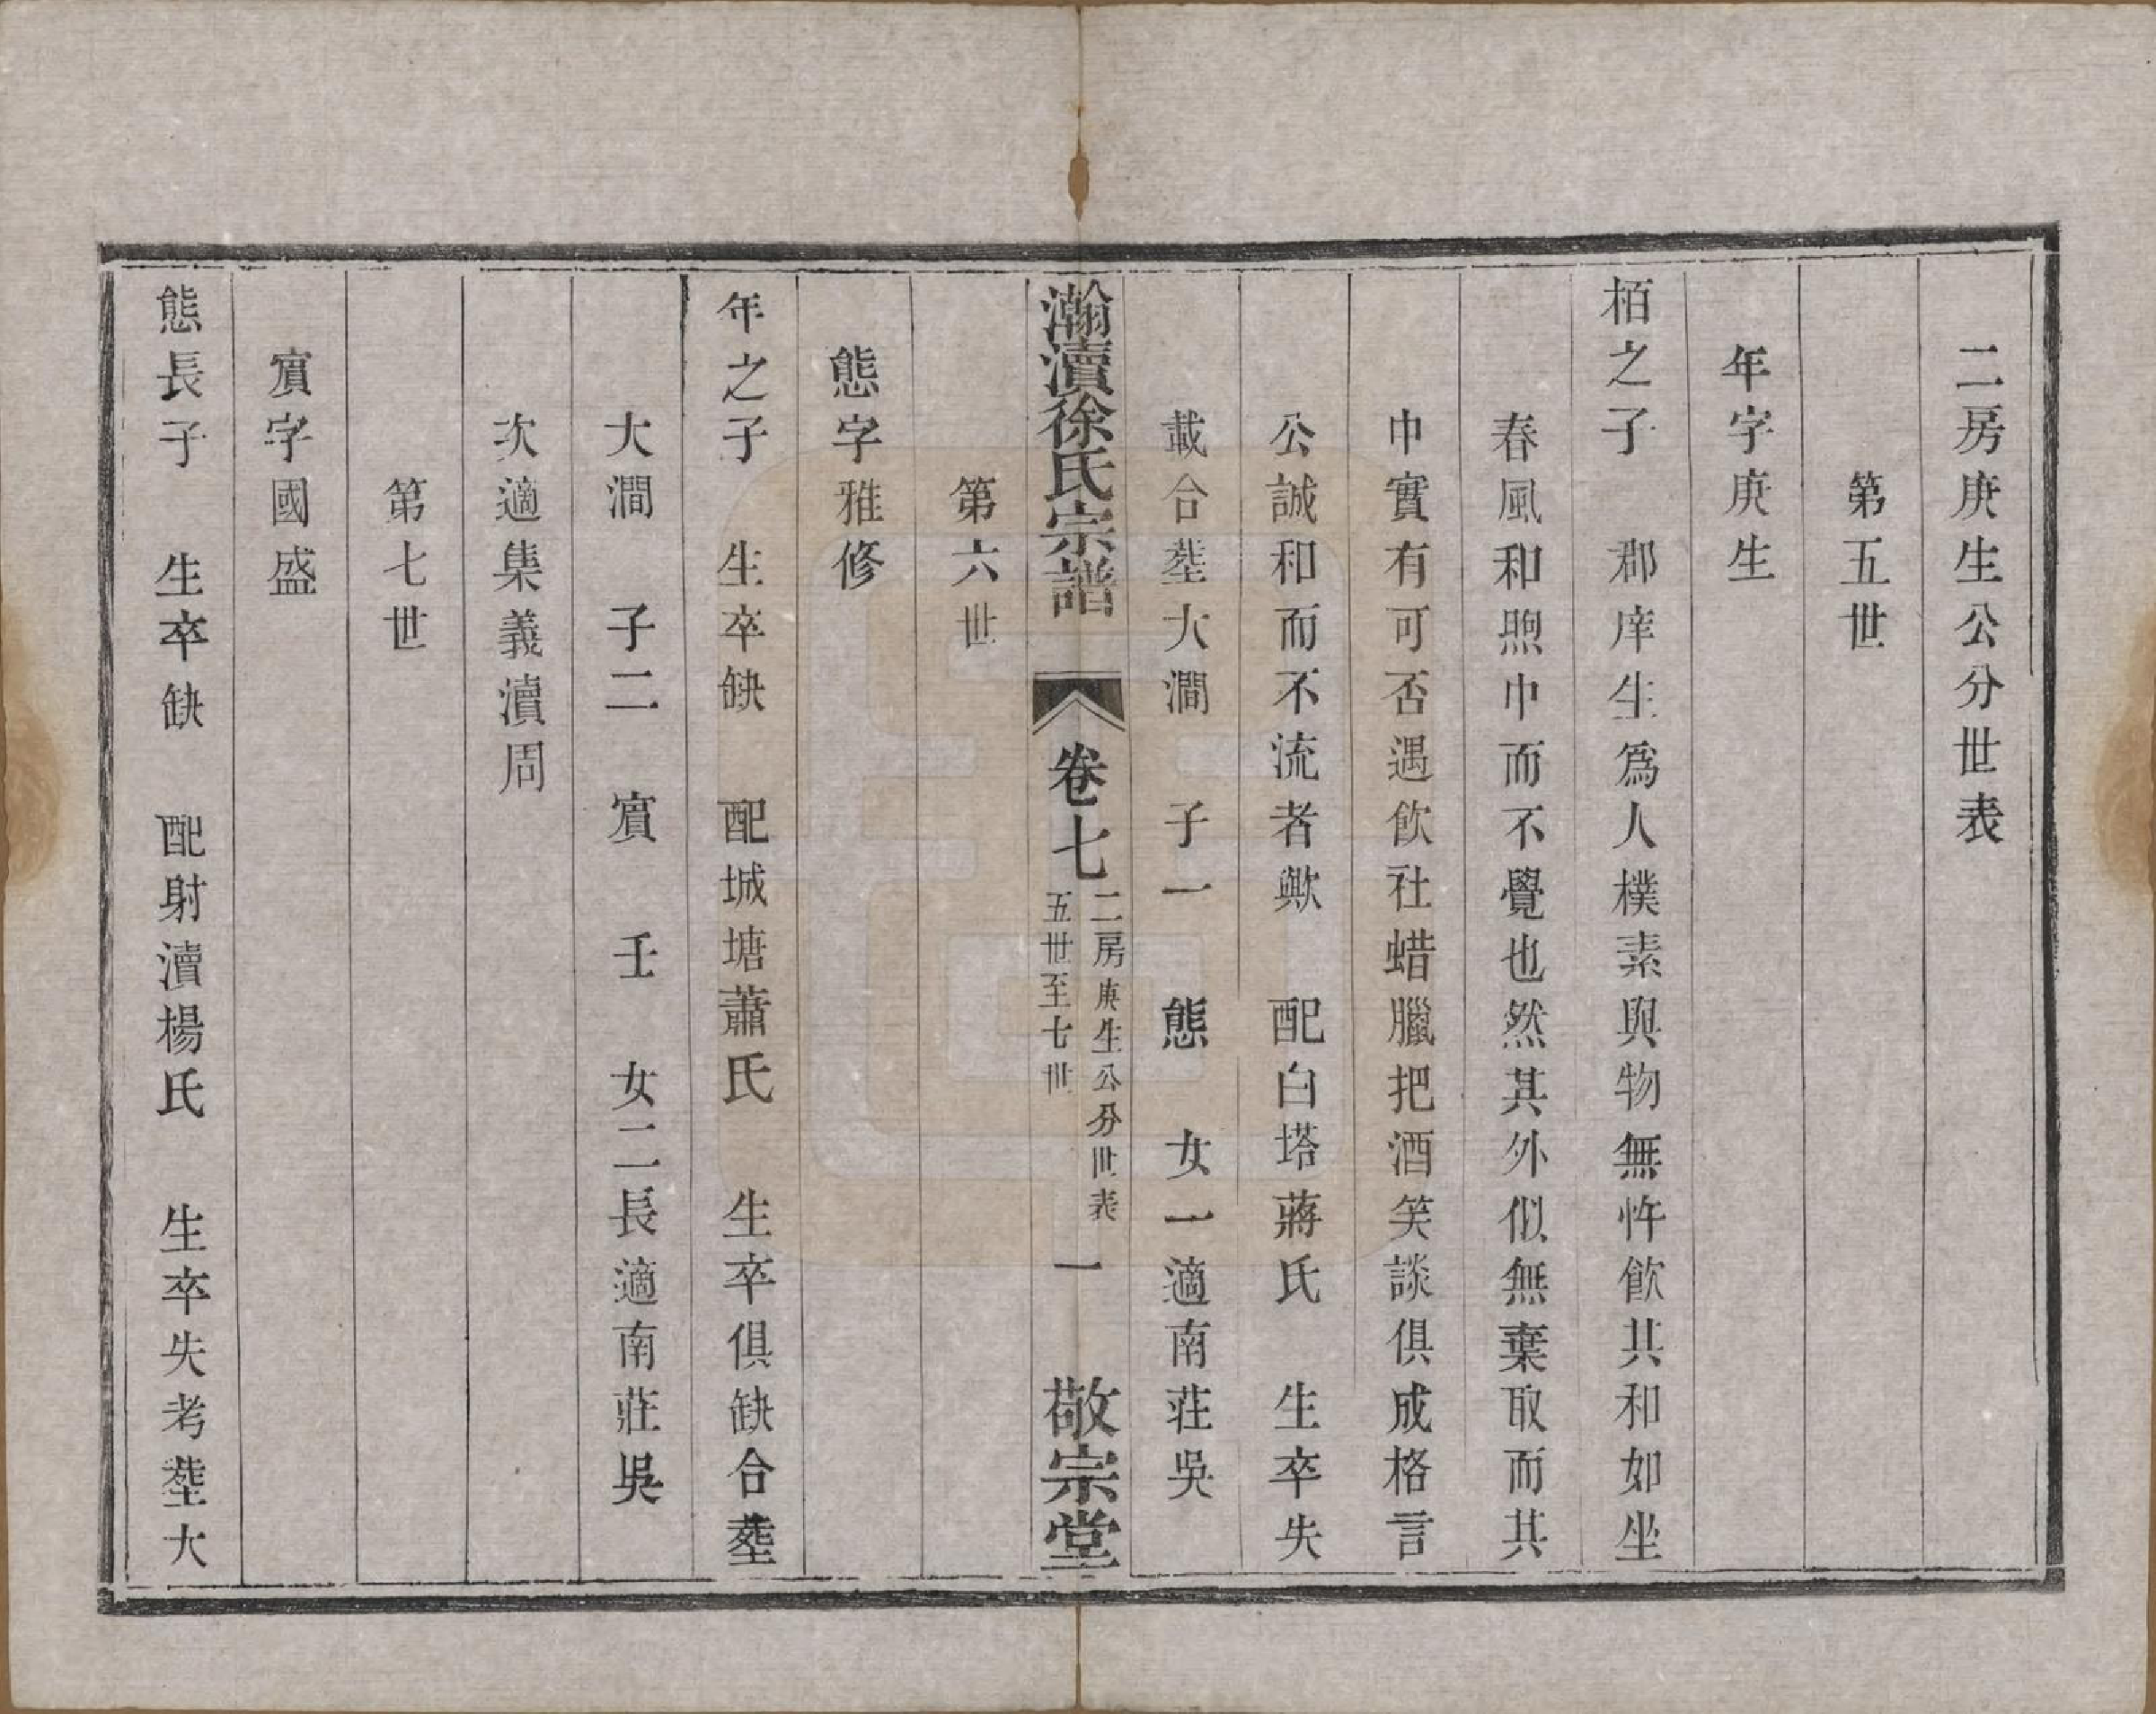 二房庚生公分世表
第五世
年字庚生
栢之子　郡庠生爲人樸素與物無忤飮其和如坐
春風和煦中而不覺也然其外似無棄取而其
中實有可否遇飮社蜡臘把酒笑談俱成格言
公誠和而不流者歟　配白塔蔣氏　生卒失
載合塟大澗　子一　態　女一適南莊吳
瀚瀆徐氏宗譜　卷七　二房庚生公分世表　五世至七世　一　敬宗堂
第六世
態字雅修
年之子　生卒缺　配城塘蕭氏　生卒俱缺合塟
大澗　子二　賔　壬　女二長適南莊吳
次適集義瀆周
第七世
賔字國盛
態長子　生卒缺　配射瀆楊氏　生卒失考塟大